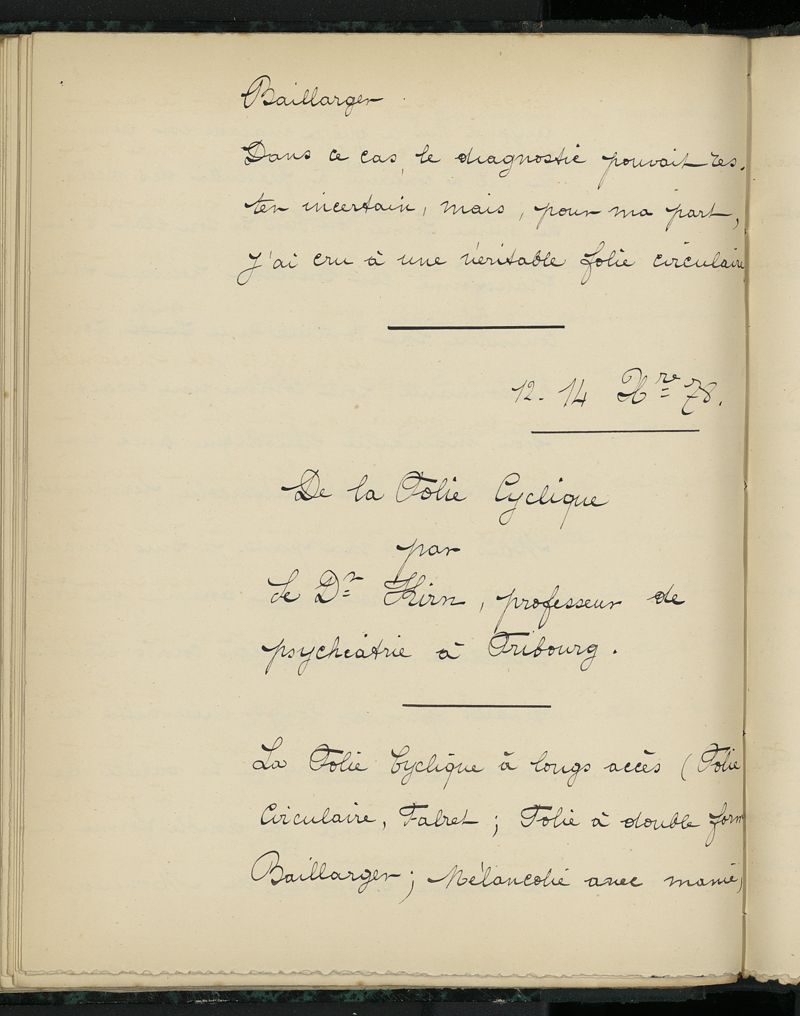 Baillarger
Dans ce cas, le diagnostic pouvait res.
ter incertain, mais, pour ma part,
j'ai cru à une véritable folie circulaire
12. 14 Xre 78.
De la Folie Cyclique
par
le Dr Kirn, professeur de
psychiâtrie à Fribourg.
La Folie Cyclique à longs accès (Folie
Circulaire, Falret ; Folie à double form
Baillarger ; Mélancolie avec manie,